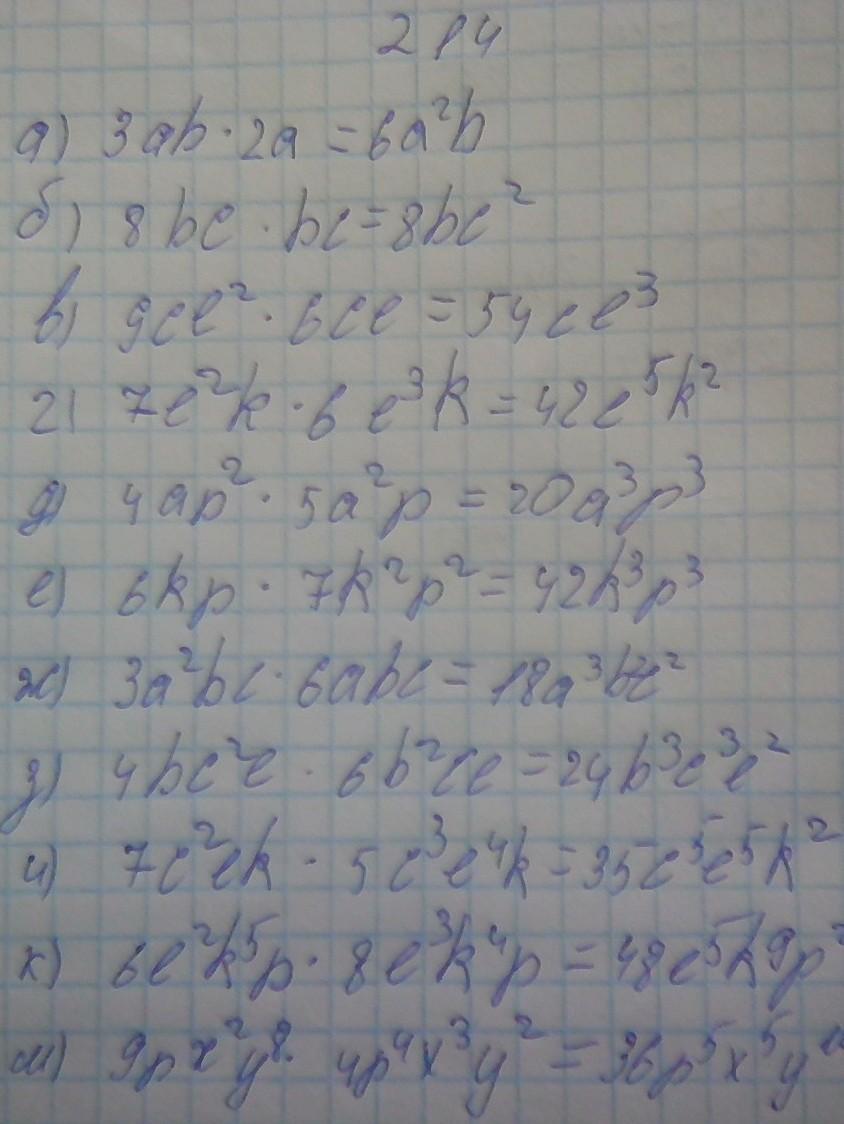 214
а) 3ab·2a = 6a²b
б) 8bc · bc = 8bc²
в) 9ce²· 6ce = 54ce³
г) 7e²k · 6 e³k = 42e⁵k²
д) 4ap² · 5a²p = 20a³p³
е) 6kp · 7k²p² = 42k³p³
ж) 3a²bc · 6abc = 18a³b²c²
з) 4bc²e · 6b²ce = 24b³c³e²
и) 7c²ek · 5c³e⁴k = 35c⁵e⁵k²
к) 6e²k⁵p · 8e³k⁴p = 48e⁵k⁹p²
м) 9px²y⁸· 4p⁴x³y² = 36p⁵x⁵y